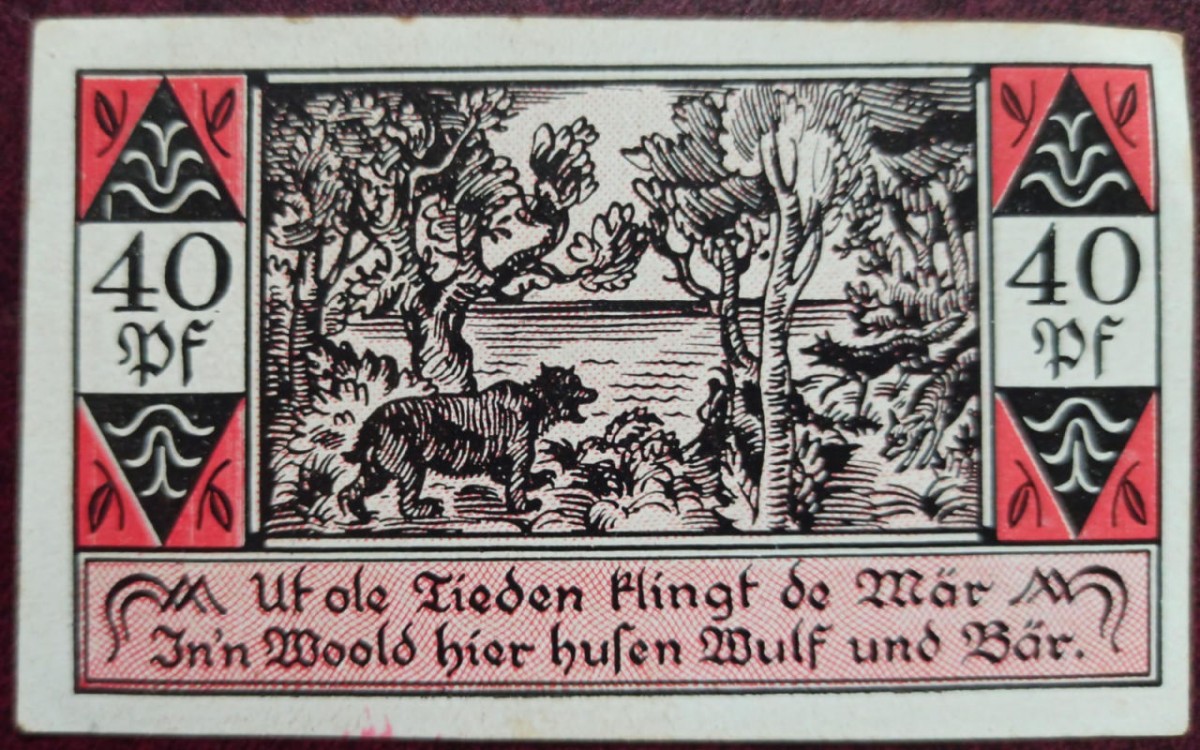 40
Pf
40
Pf
Ut ole Tieden klingt de Mär
In'n Woold hier husen Wulf und Bär.